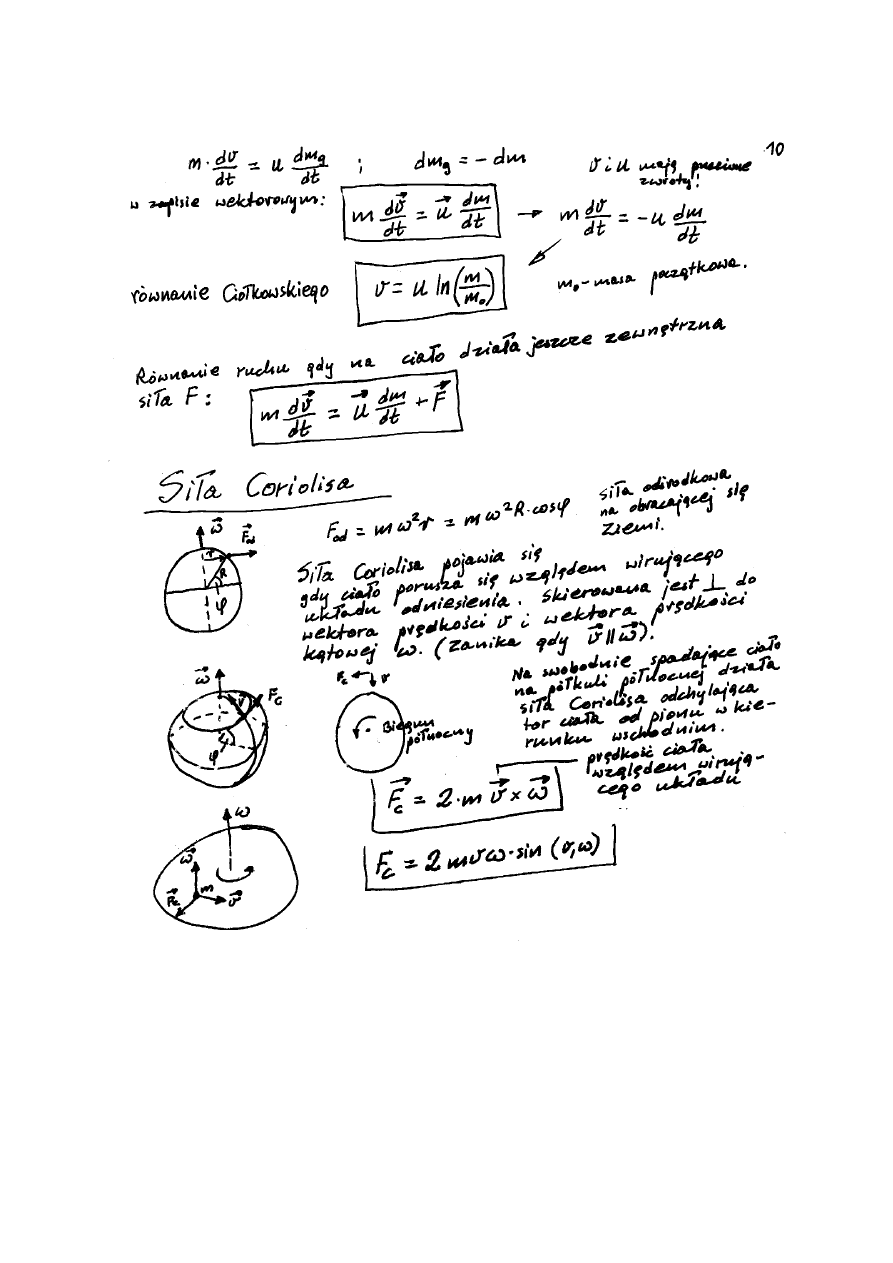 10
m · dv/dt = u dm_g/dt ; dm_g = - dm v i u mają przeciwne zwroty!
w zapisie wektorowym: m dv⃗/dt = u⃗ dm/dt → m dv/dt = -u dm/dt
równanie Ciołkowskiego v = u ln(m/m₀) m₀ - masa początkowa.
Równanie ruchu gdy na ciało działa jeszcze zewnętrzna
siła F⃗ : m dv⃗/dt = u⃗ dm/dt + F⃗
Siła Coriolisa
ω⃗ F⃗od r R φ
Fod = mω²r = mω²R·cosφ
siła odśrodkowa
na obracającej się
Ziemi.
Siła Coriolisa pojawia się
gdy ciało porusza się względem wirującego
układu odniesienia. Skierowana jest ⊥ do
wektora prędkości v i wektora prędkości
kątowej ω. (Zanika gdy v⃗ ∥ ω⃗).
ω⃗ v Fc φ
Fc v
Biegun
północny
Na swobodnie spadające ciało
na półkuli północnej działa
siła Coriolisa odchylająca
tor ciała od pionu w kie-
runku wschodnim.
prędkość ciała
względem wirują-
cego układu
F⃗c = 2·m v⃗ × ω⃗
ω
ω⃗ m F⃗c v⃗
Fc = 2mvω·sin (v,ω)